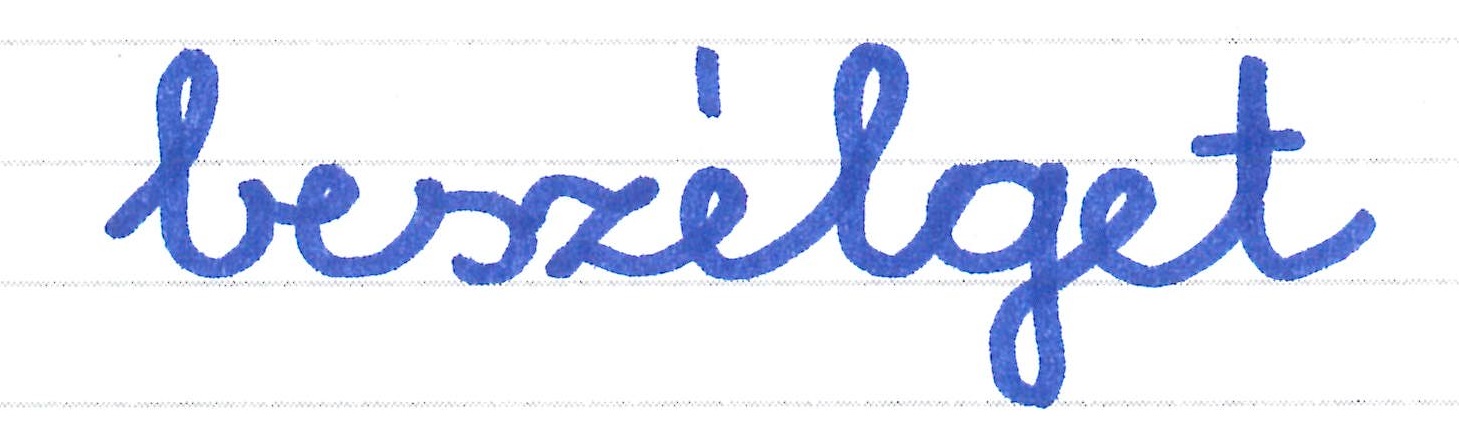 beszélget